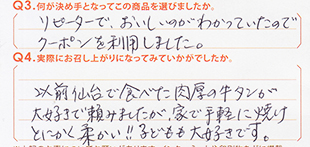 Q3.何が決め手となってこの商品を選びましたか。
リピーターで、おいしいのがわかっていたので
クーポンを利用しました。
Q4.実際にお召し上がりになってみていかがでしたか。
以前仙台で食べた肉厚の牛タンが
大好きで頼みましたが、家で手軽に焼け
とにかく柔かい!!子どもも大好きです。